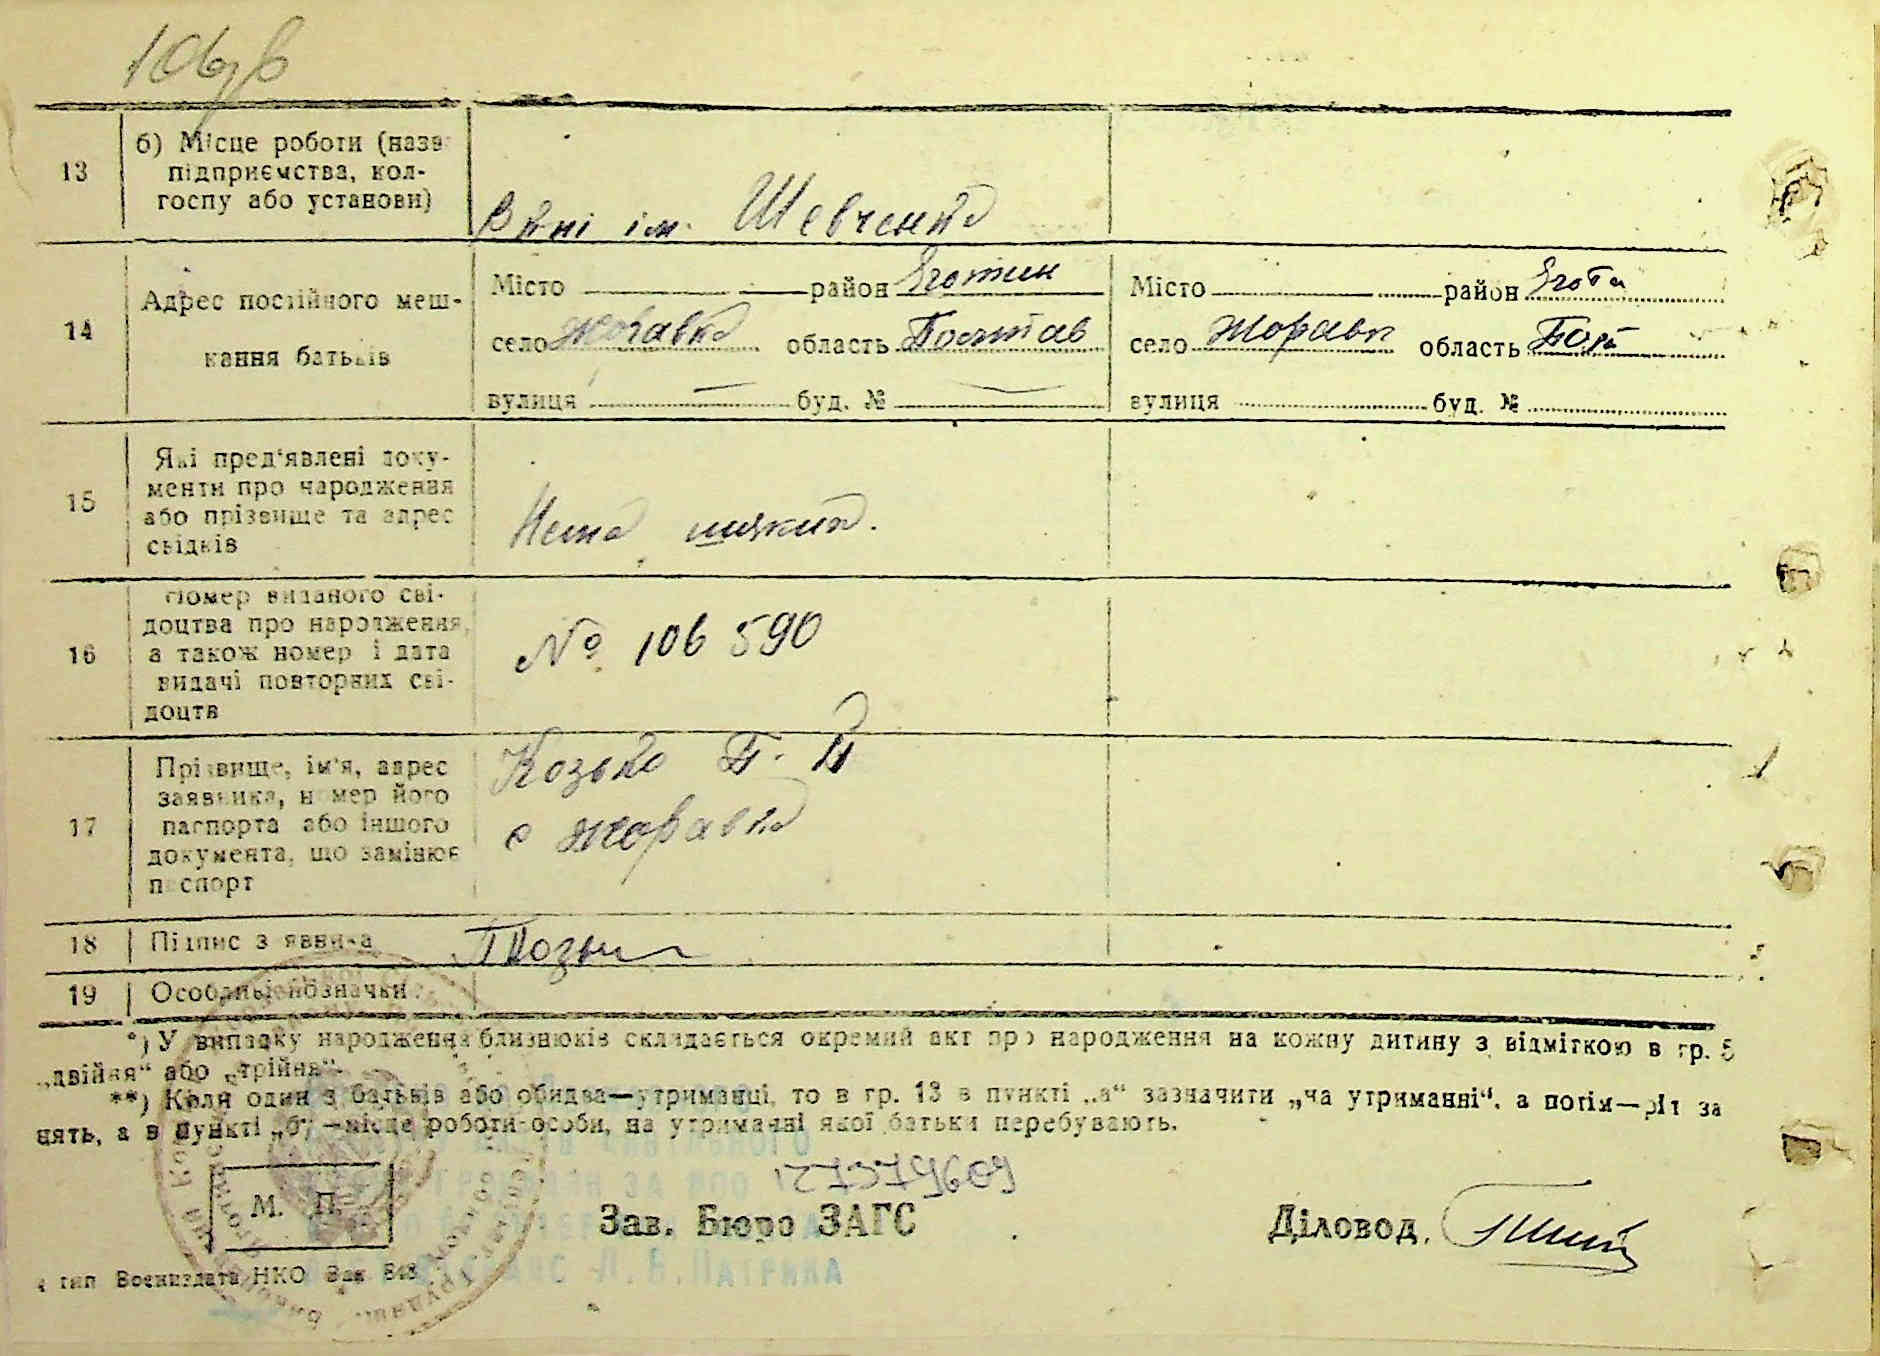 106
13
б) Місце роботи (назв
підприємства, кол-
госпу або установи)
ім. Шевченка
14
Адрес постійного меш-
кання батьків
Місто район Яготин
село Жоравка область Полтав
вулиця — буд. № —
Місто район Ягот
село Жоравк область Пол
вулиця буд. №
15
Які пред'явлені доку-
менти про народження
або прізвище та адрес
свідків
Нема ніяких.
16
Номер виданого сві-
доцтва про народження,
а також номер і дата
видачі повторних сві-
доцтв
№ 106 590
17
Прізвище, ім'я, адрес
заявника, номер його
паспорта або іншого
документа, що замінює
паспорт
Козько П. Й
с Жоравка
18
Підпис заявника
19
Особливі позначки
*) У випадку народження близнюків складається окремий акт про народження на кожну дитину з відміткою в гр. 5
„двійня“ або „трійня“.
**) Коли один з батьків або обидва—утриманці, то в гр. 13 в пункті „а“ зазначити „на утриманні“, а потім—рід за
нять, а в пункті „б“ —місце роботи особи, на утриманні якої батьки перебувають.
М. П.
Зав. Бюро ЗАГС
Діловод.
тип Воениздата НКО Зак 848
Л. В. Патрика